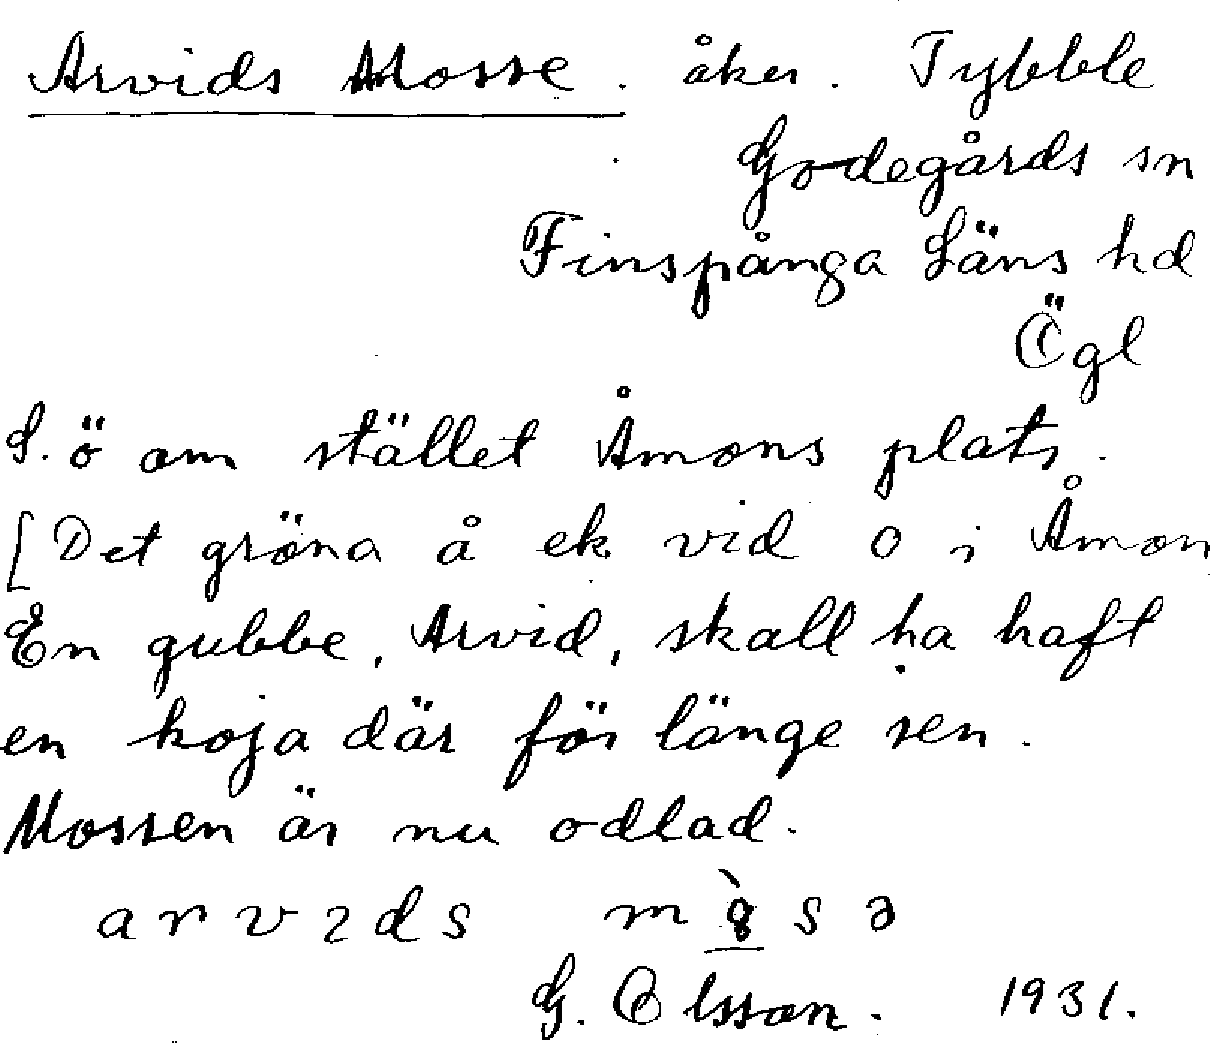 Arvids Mosse. åker. Tybble
Godegårds sn
Finspånga Läns hd
Ögl
S. ö om stället Åmons plats.
[Det gröna å ek vid o i Åmon
En gubbe, Arvid, skall ha haft
en koja där för länge sen.
Mossen är nu odlad.
arvɩds mòsə
G. Olsson. 1931.